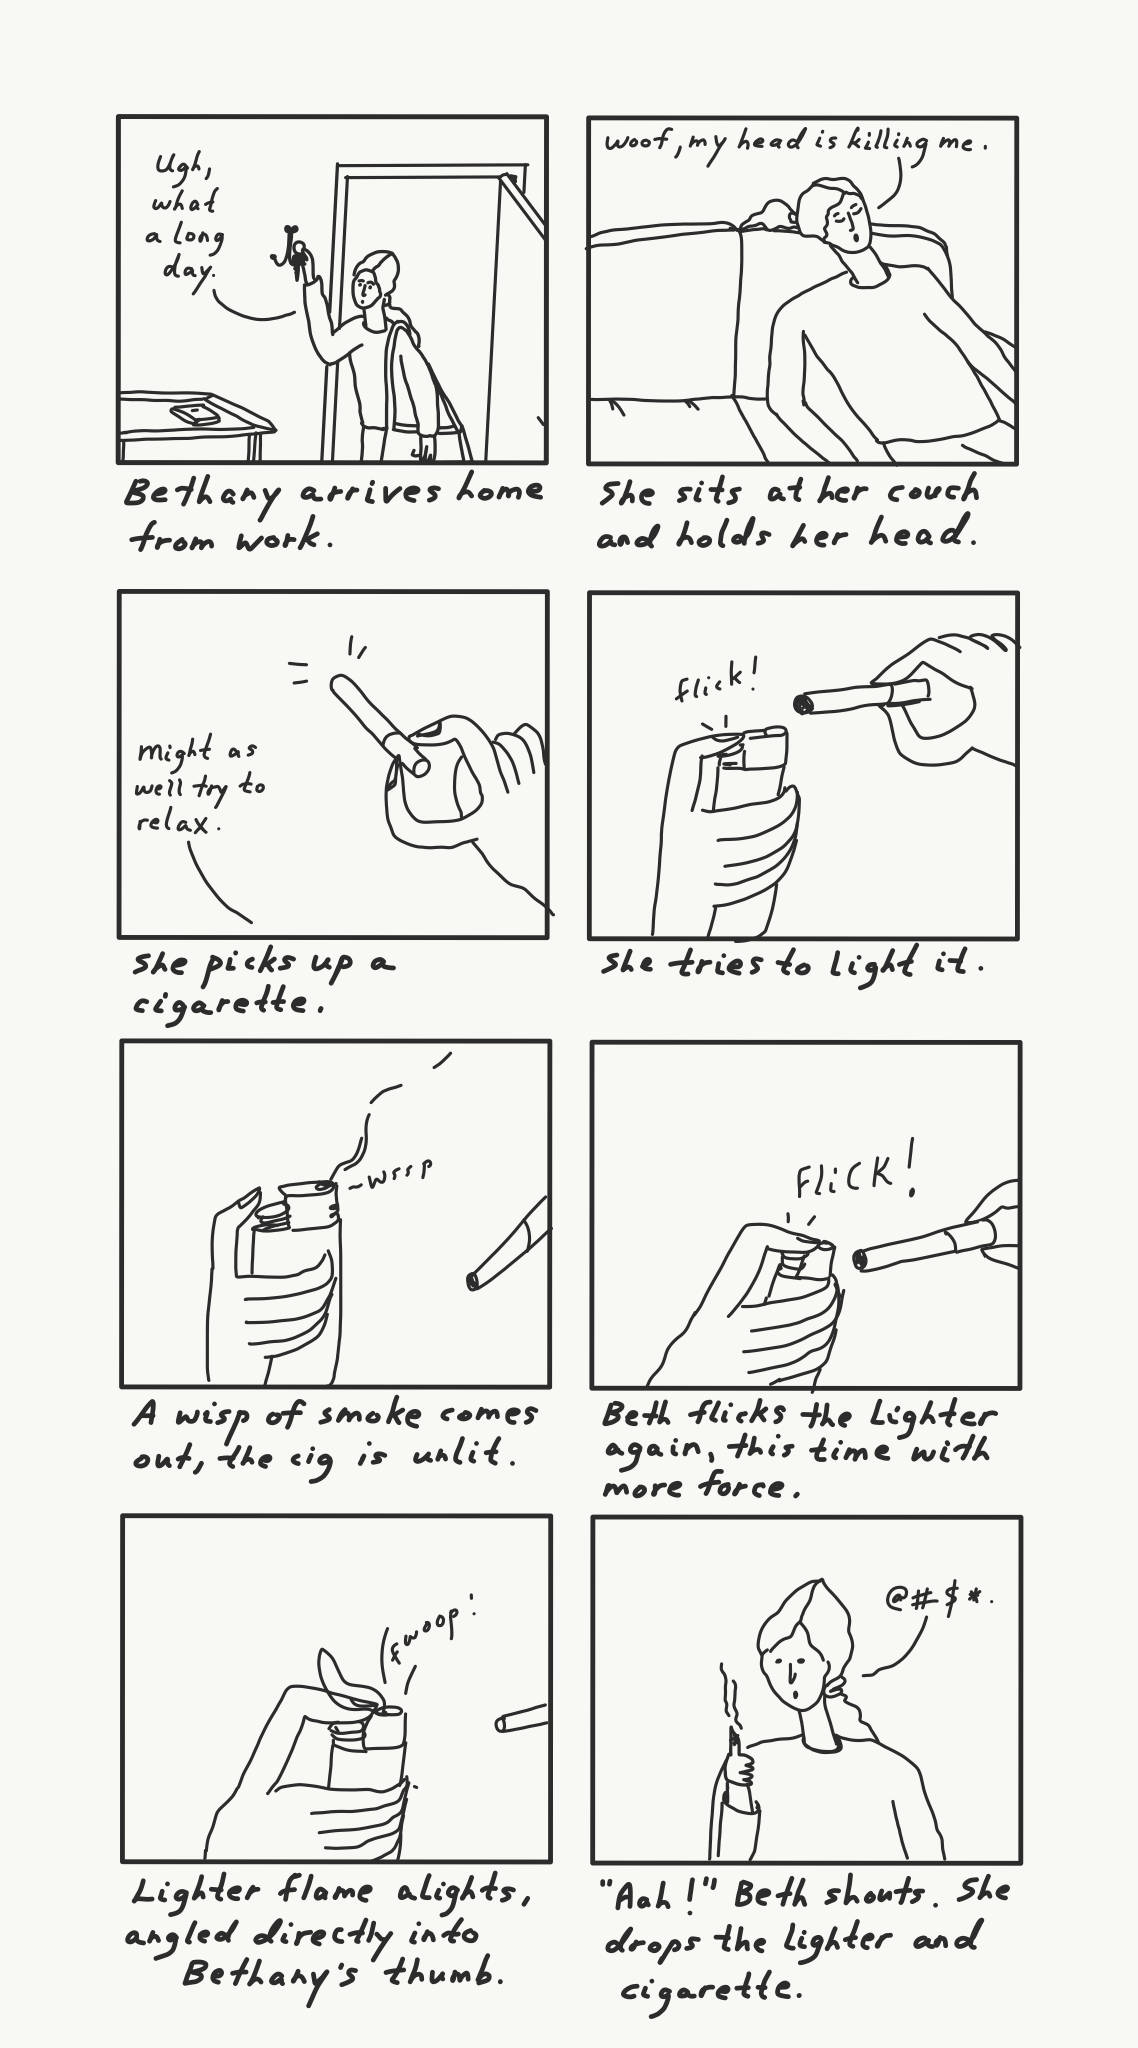 Ugh,
what
a long
day.
Bethany arrives home
from work.
woof, my head is killing me.
She sits at her couch
and holds her head.
Might as
well try to
relax.
She picks up a
cigarette.
flick!
She tries to light it.
~wssp
A wisp of smoke comes
out, the cig is unlit.
FLiCK!
Beth flicks the Lighter
again, this time with
more force.
fwoop!
Lighter flame alights,
angled directly into
Bethany's thumb.
@#$*.
"Aah!" Beth shouts. She
drops the lighter and
cigarette.